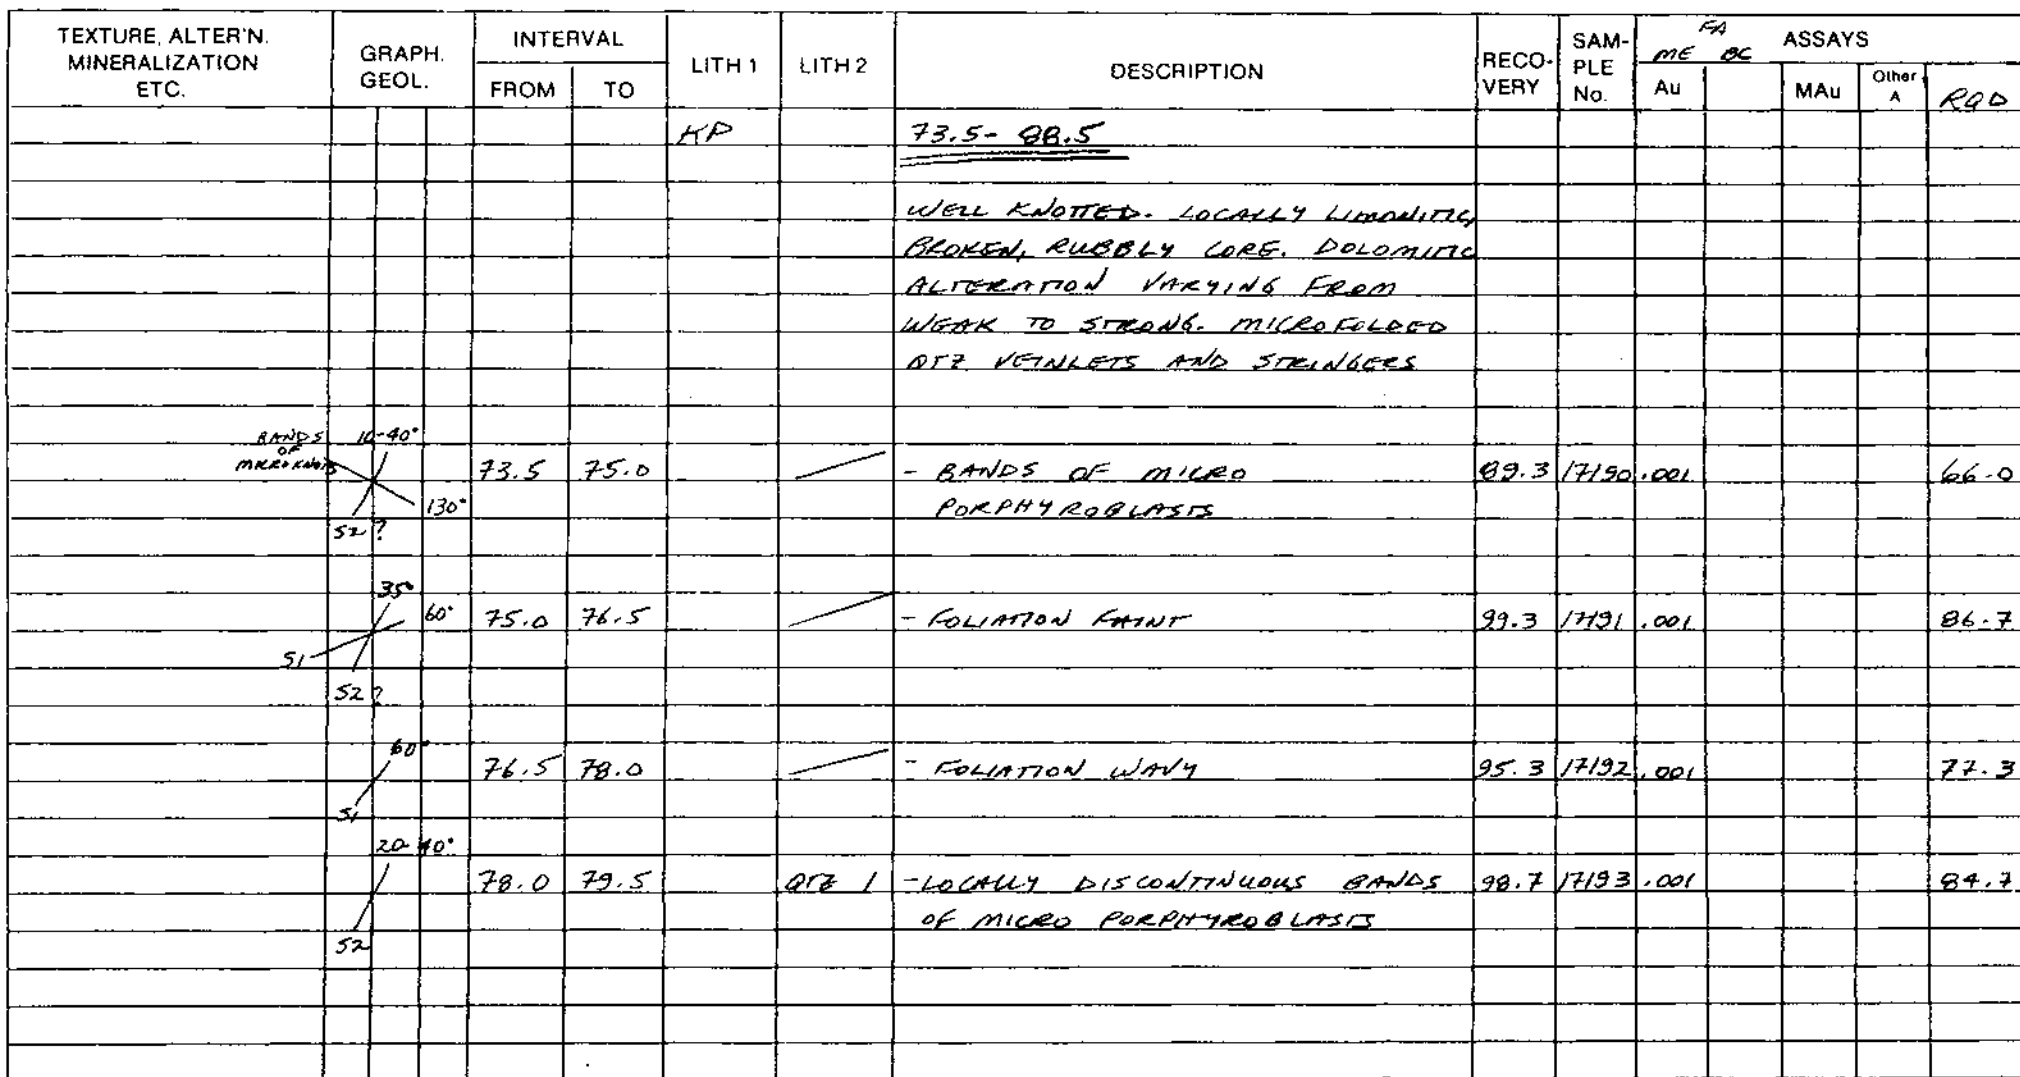 TEXTURE, ALTER'N. MINERALIZATION ETC.
GRAPH. GEOL.
INTERVAL
FROM TO
LITH 1
LITH 2
DESCRIPTION
RECO-VERY
SAM-PLE No.
FA
ME BC
ASSAYS
Au
MAu
Other A
RQD
KP 73.5 - 88.5
WELL KNOTTED. LOCALLY LIMONITIC,
BROKEN, RUBBLY CORE. DOLOMITIC
ALTERATION VARYING FROM
WEAK TO STRONG. MICROFOLDED
QTZ VEINLETS AND STRINGERS
BANDS OF MICROKNOTS
10-40°
73.5 75.0 - BANDS OF MICRO 89.3 17190 .001 66.0
130° PORPHYROBLASTS
S2?
35°
60° 75.0 76.5 - FOLIATION FAINT 99.3 17191 .001 86.7
S1
S2?
60°
76.5 78.0 - FOLIATION WAVY 95.3 17192 .001 77.3
S1
20-40°
78.0 79.5 QTZ 1 - LOCALLY DISCONTINUOUS BANDS 98.7 17193 .001 84.7
OF MICRO PORPHYROBLASTS
S2